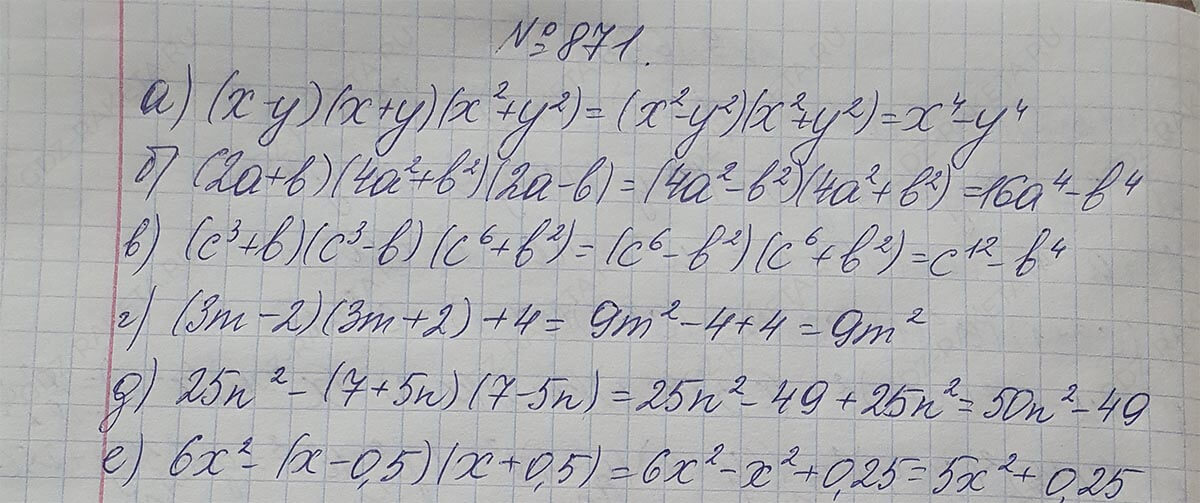 №871.
а) (x-y)(x+y)(x²+y²)=(x²-y²)(x²+y²)=x⁴-y⁴
б) (2a+b)(4a²+b²)(2a-b)=(4a²-b²)(4a²+b²)=16a⁴-b⁴
в) (c³+b)(c³-b)(c⁶+b²)=(c⁶-b²)(c⁶+b²)=c¹²-b⁴
г) (3m-2)(3m+2)+4=9m²-4+4=9m²
д) 25n²-(7+5n)(7-5n)=25n²-49+25n²=50n²-49
е) 6x²-(x-0,5)(x+0,5)=6x²-x²+0,25=5x²+0,25